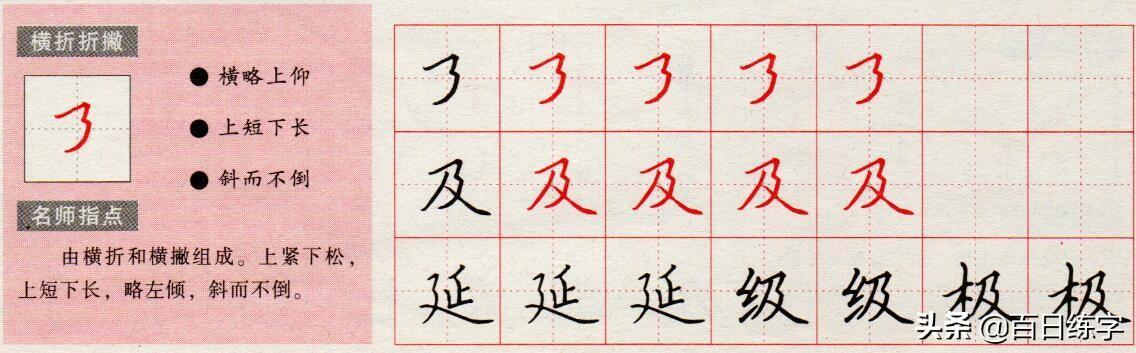 横折折撇
㇋
横略上仰
上短下长
斜而不倒
名师指点
由横折和横撇组成。上紧下松，
上短下长，略左倾，斜而不倒。
㇋ ㇋ ㇋ ㇋ ㇋
及 及 及 及 及
延 延 延 级 级 极 极
头条 @百日练字